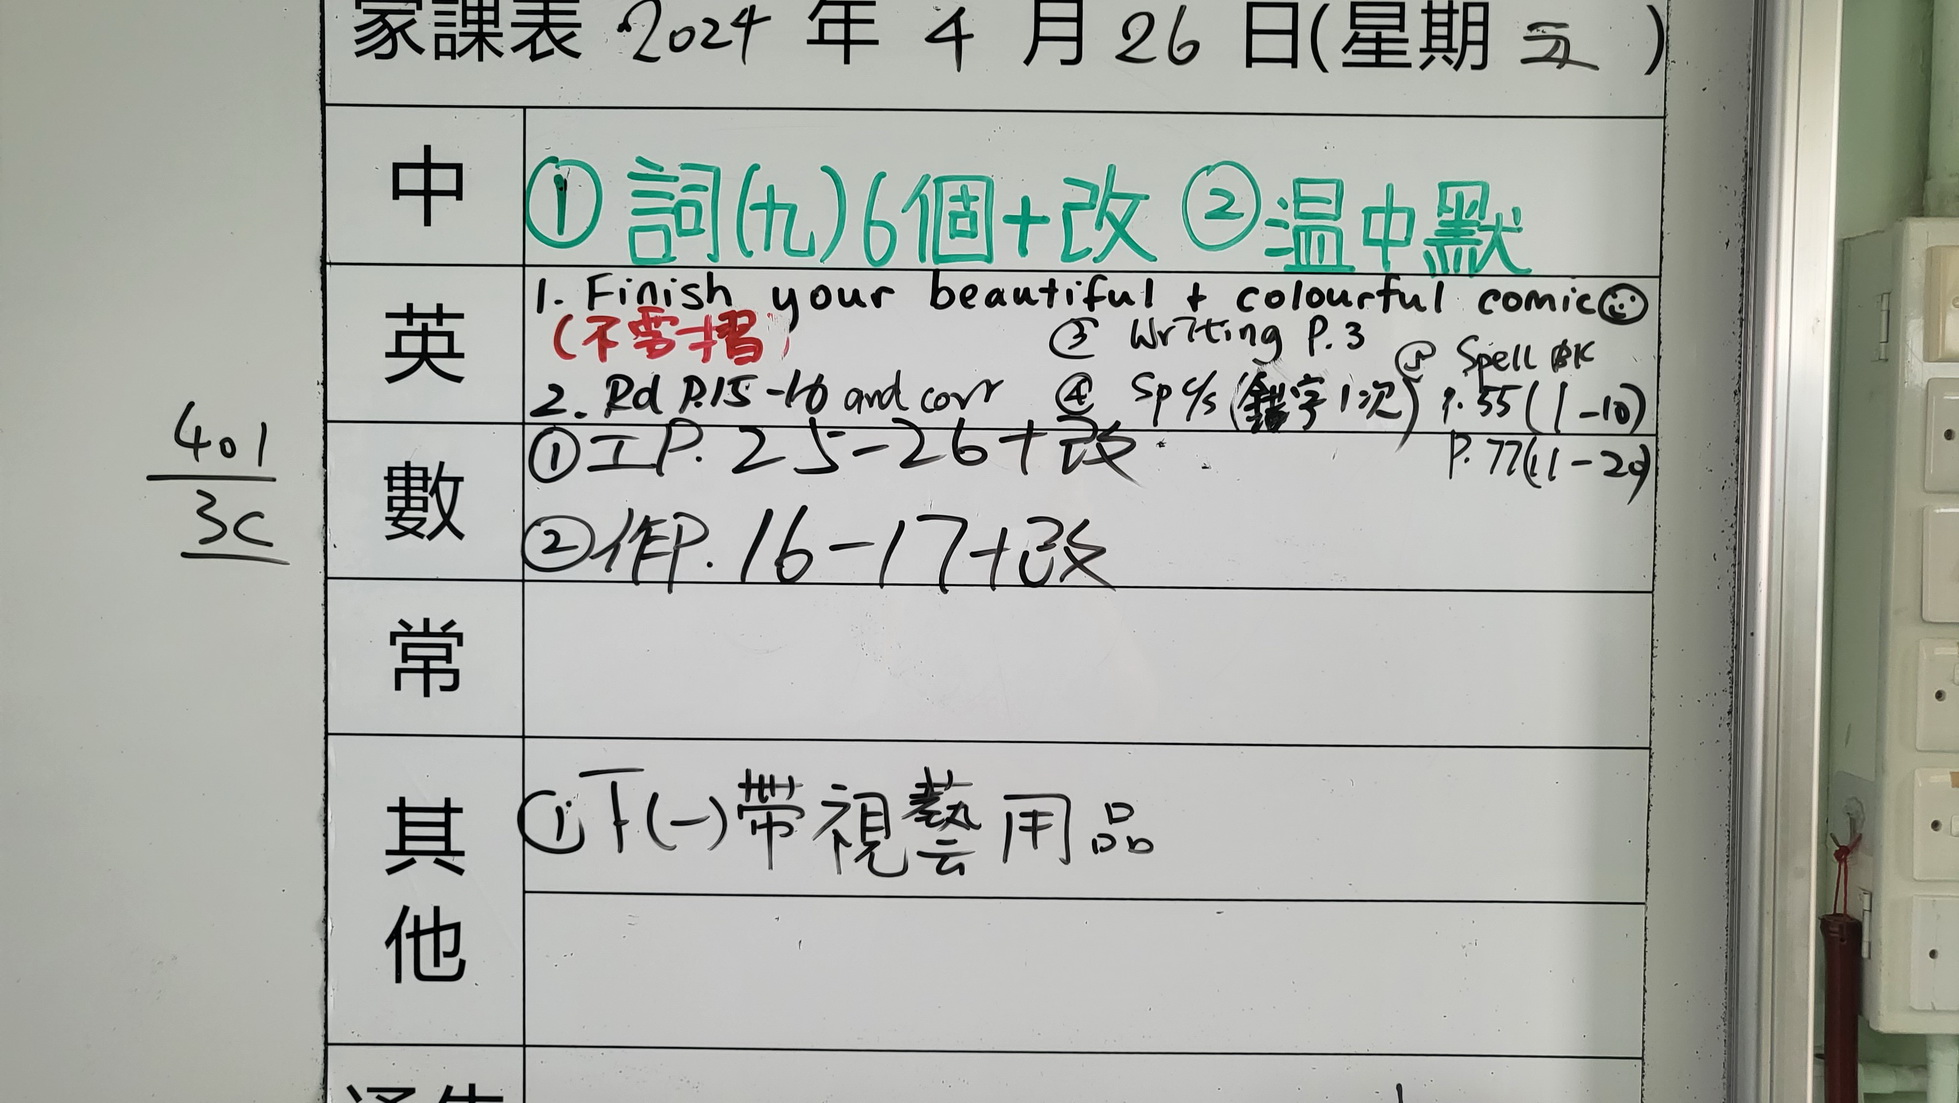 家課表 2024 年 4 月 26 日(星期 五 )
中
① 詞(九)6個+改 ②温中默
英
1. Finish your beautiful + colourful comic
(不需摺)
③ Writing P.3
⑤ Spell BK
2. Rd P.15-16 and corr ④ Sp c/s (錯字1次) P.55(1-10)
P.77(11-20)
401
3C
數
①工P.25-26+改
②作P.16-17+改
常
其他
①下(一)帶視藝用品